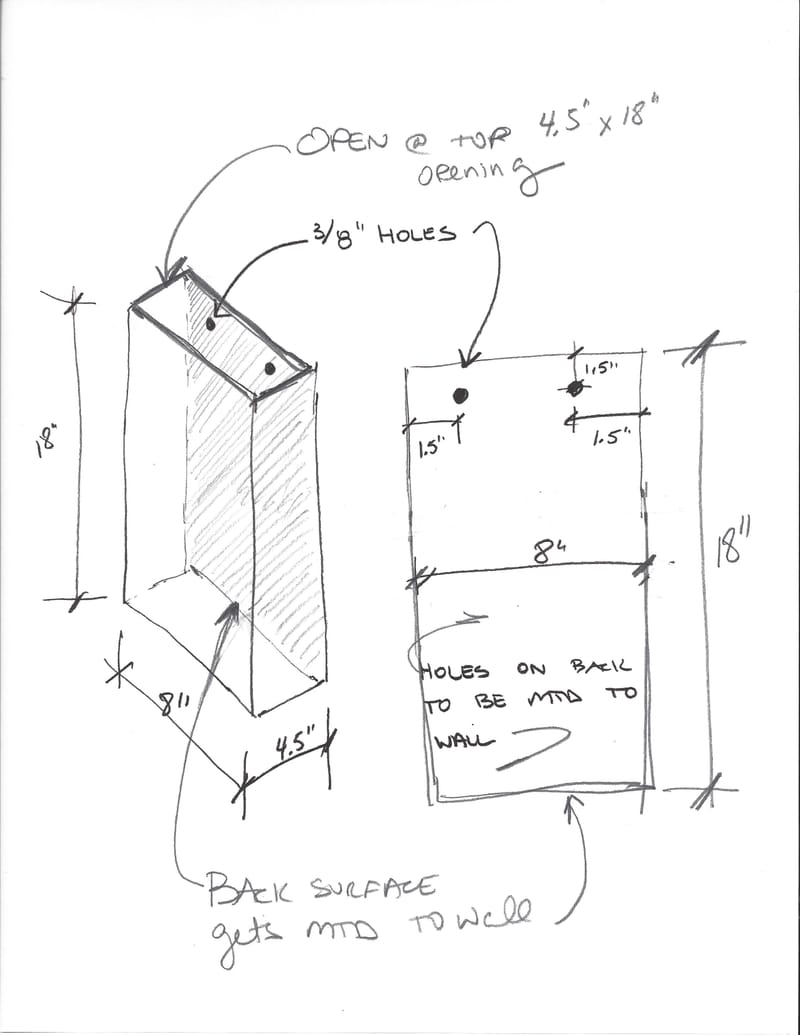 OPEN @ TOP 4.5" x 18"
opening
3/8" HOLES
18"
1.5"
1.5"
1.5"
8"
18"
HOLES ON BACK
TO BE MTD TO
WALL
8"
4.5"
BACK SURFACE
gets MTD TO Wall